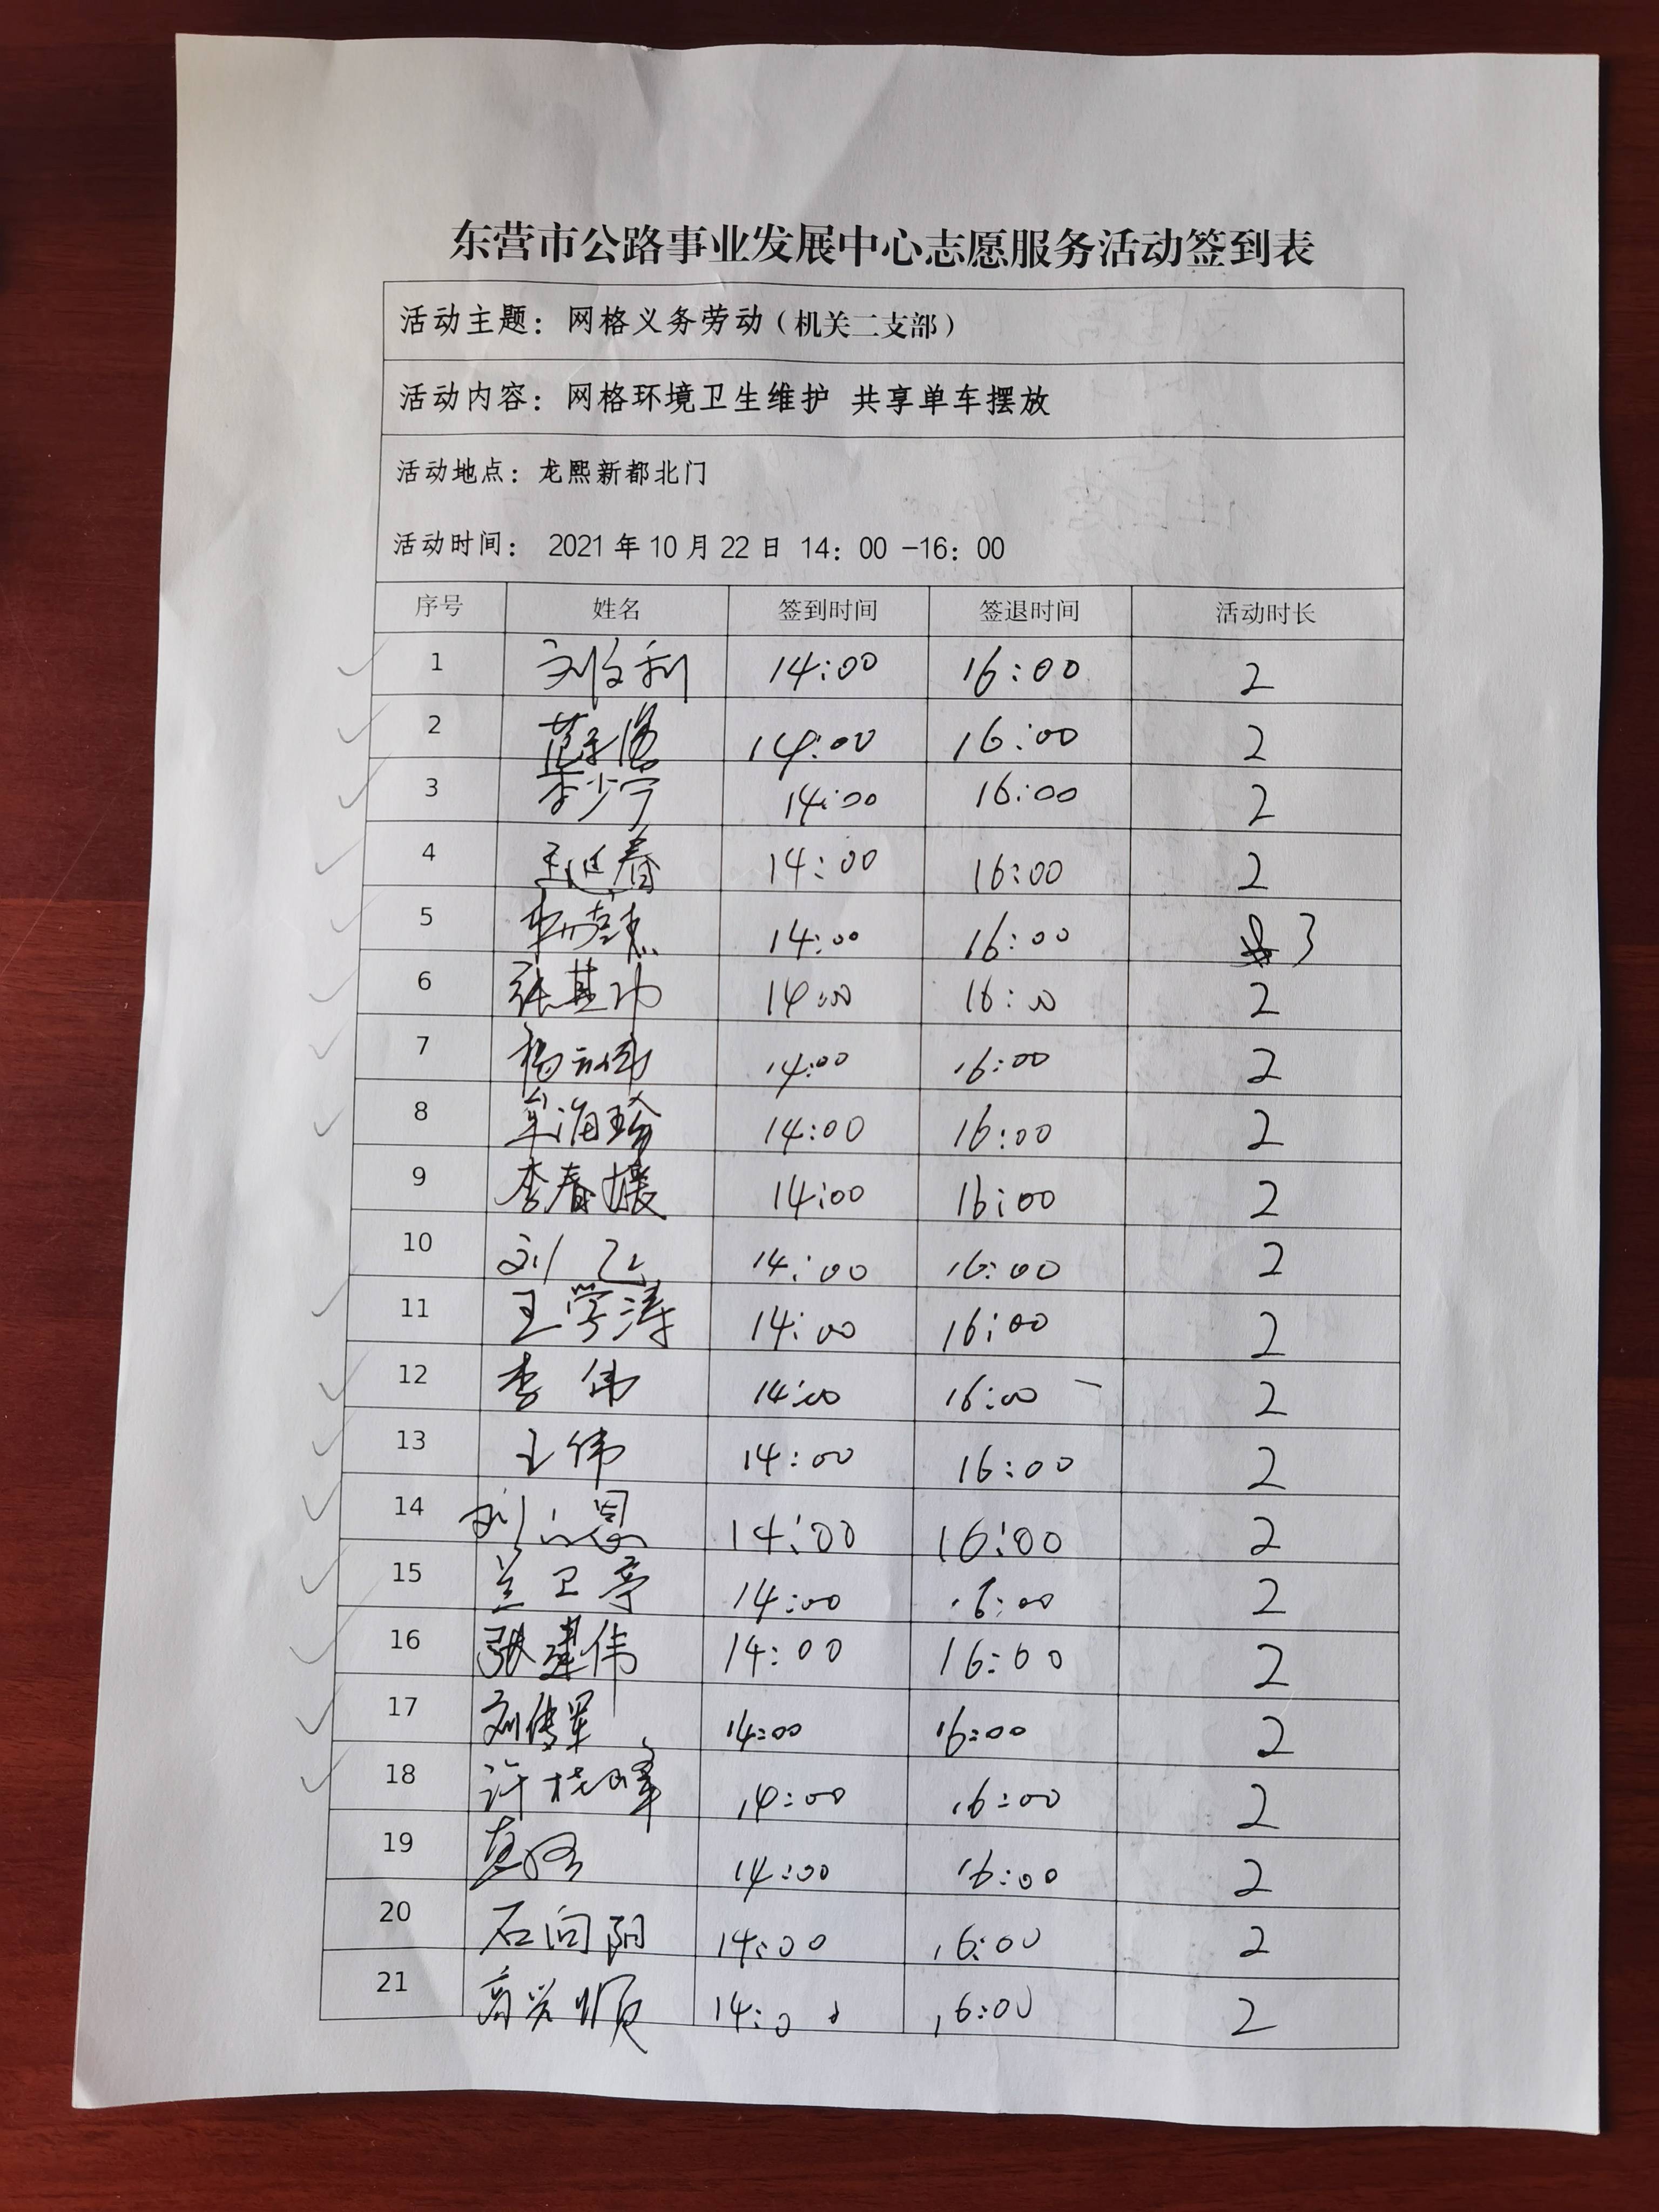 东营市公路事业发展中心志愿服务活动签到表
活动主题：网格义务劳动（机关二支部）
活动内容：网格环境卫生维护 共享单车摆放
活动地点：龙熙新都北门
活动时间： 2021年10月22日 14：00-16：00
序号 姓名 签到时间 签退时间 活动时长
1 14:00 16:00 2
2 14:00 16:00 2
3 李少宁 14:00 16:00 2
4 王延春 14:00 16:00 2
5 14:00 16:00 3
6 张其功 14:00 16:00 2
7 14:00 16:00 2
8 14:00 16:00 2
9 李春媛 14:00 16:00 2
10 刘飞 14:00 16:00 2
11 王学涛 14:00 16:00 2
12 李伟 14:00 16:00 2
13 王伟 14:00 16:00 2
14 14:00 16:00 2
15 兰卫亭 14:00 16:00 2
16 张建伟 14:00 16:00 2
17 刘传军 14:00 16:00 2
18 许晓峰 14:00 16:00 2
19 14:00 16:00 2
20 石向阳 14:00 16:00 2
21 高兴顺 14:00 16:00 2